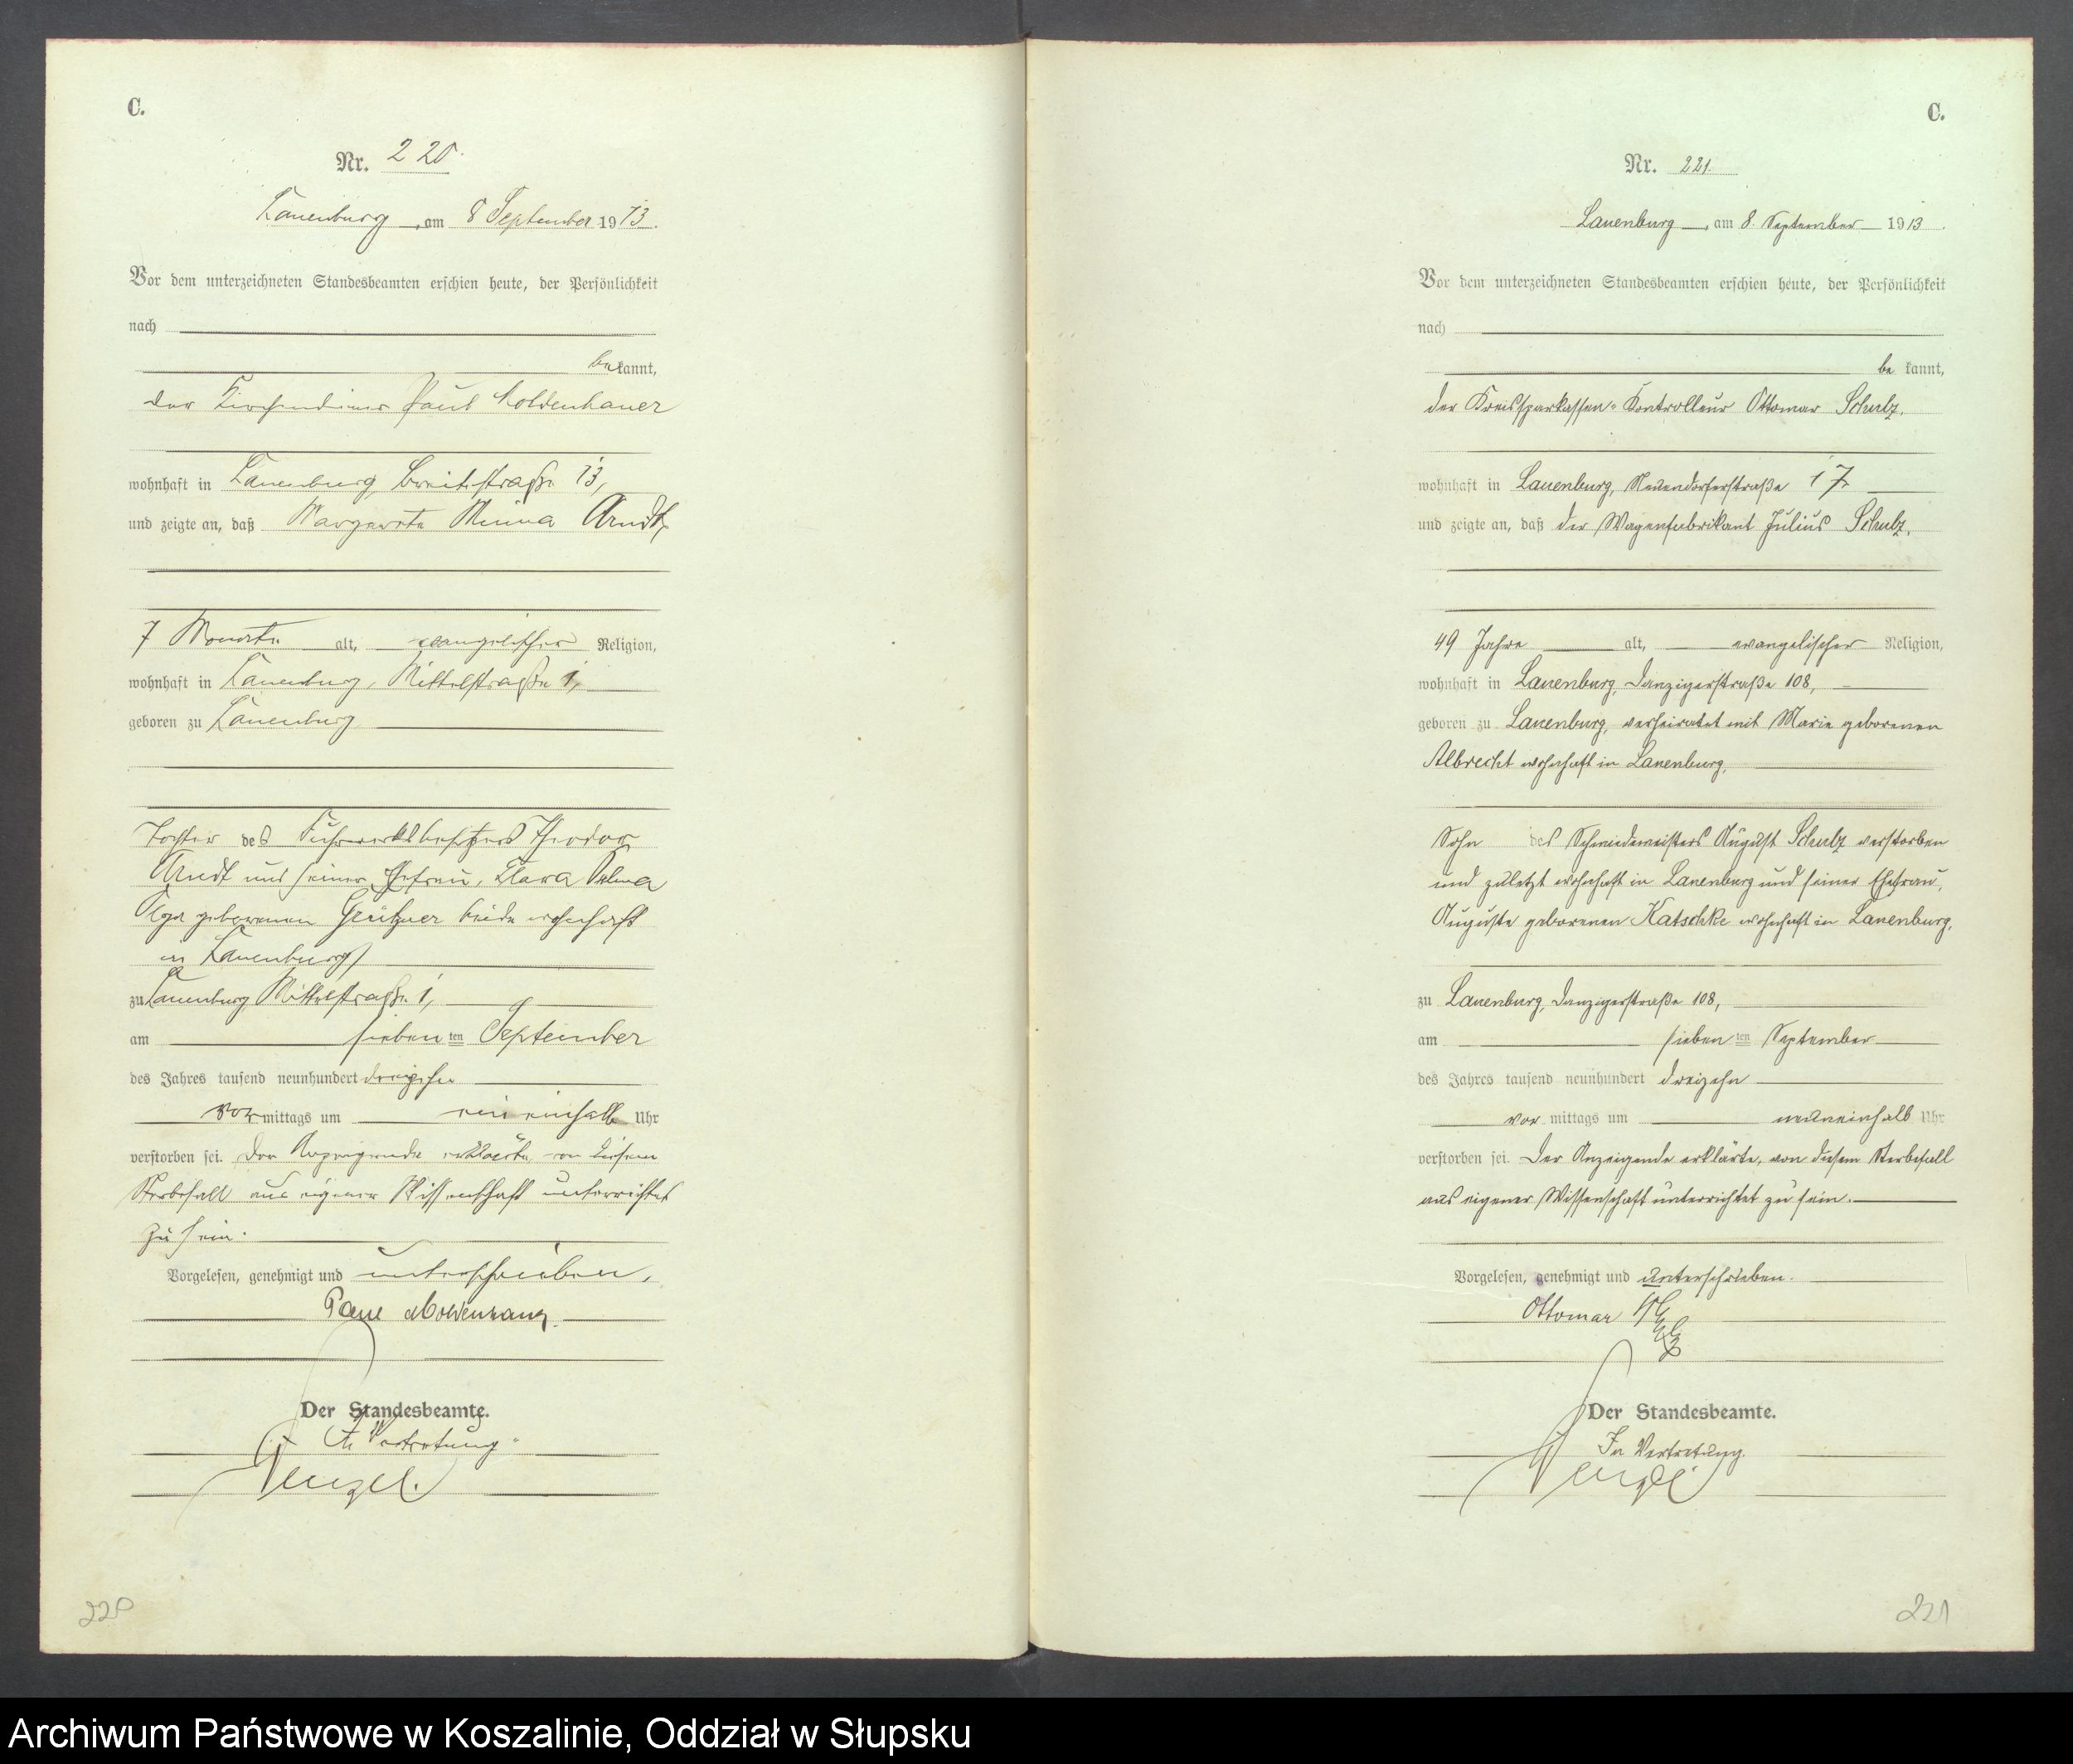 C.
Nr. 220.
Lauenburg, am 8 September 1913.
Vor dem unterzeichneten Standesbeamten erschien heute, der Persönlichkeit
nach
bekannt,
der Kirchendiener Paul Moldenhauer
wohnhaft in Lauenburg, Breitestraße 13,
und zeigte an, daß Margarete Minna Arndt,
7 Monate alt, evangelischer Religion,
wohnhaft in Lauenburg, Mittelstraße 1,
geboren zu Lauenburg
Tochter des Fuhrwerksbesitzers Theodor
Arndt und seiner Ehefrau, Klara
geborenen beide wohnhaft
in Lauenburg,
zu Lauenburg Mittelstraße 1,
am siebenten September
des Jahres tausend neunhundert dreizehn
vormittags um ein einhalb Uhr
verstorben sei. Der Anzeigende erklärte von diesem
Sterbefall aus eigener Wissenschaft unterrichtet
zu sein.
Vorgelesen, genehmigt und unterschrieben.
Paul Moldenhauer
Der Standesbeamte.
In Vertretung.
C.
Nr. 221.
Lauenburg, am 8. September 1913.
Vor dem unterzeichneten Standesbeamten erschien heute, der Persönlichkeit
nach
be kannt,
der Kreissparkassen-Kontrolleur Ottomar Schulz,
wohnhaft in Lauenburg, Neuendorferstraße 17
und zeigte an, daß der Wagenfabrikant Julius Schulz,
49 Jahre alt, evangelischer Religion,
wohnhaft in Lauenburg, Danzigerstraße 108,
geboren zu Lauenburg, verheiratet mit Marie geborenen
Albrecht wohnhaft in Lauenburg,
Sohn des Schmiedemeisters August Schulz verstorben
und zuletzt wohnhaft in Lauenburg und seiner Ehefrau,
Auguste geborenen Katschke wohnhaft in Lauenburg,
zu Lauenburg, Danzigerstraße 108,
am siebenten September
des Jahres tausend neunhundert dreizehn
vor mittags um neuneinhalb Uhr
verstorben sei. Der Anzeigende erklärte, von diesem Sterbefall
aus eigener Wissenschaft unterrichtet zu sein.
Vorgelesen, genehmigt und unterschrieben.
Ottomar Schulz
Der Standesbeamte.
In Vertretung.
220
221
Archiwum Państwowe w Koszalinie, Oddział w Słupsku